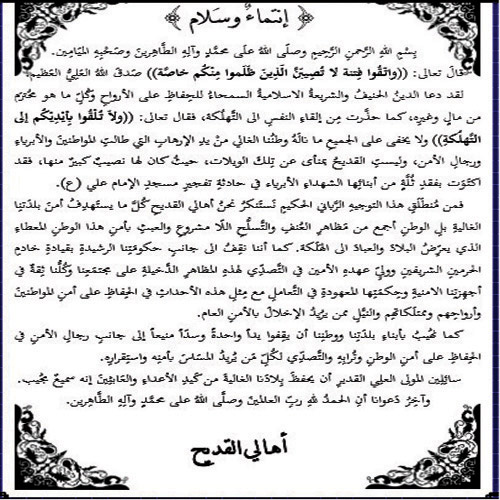 ﴿ إنتماءٌ وسَلام ﴾
بِسْمِ اللهِ الرَّحمنِ الرَّحيمِ وصلّى اللهُ على محمَّدٍ وآلِهِ الطَّاهِرينَ وصَحْبِهِ المَيَامِين.
قالَ تعالى: ((واتَّقُوا فِتنَة لاَ تُصِيبَنَّ الَّذِينَ ظَلَمُوا مِنكُم خاصَّة)) صدَقَ اللهُ العَليُّ العَظيم.
لقد دعا الدينُ الحنيفُ والشريعةُ الاسلاميةُ السمحاءُ للحِفاظِ على الأرواحِ وكُلِّ ما هو محُترَم
من مالٍ وغيرِه، كما حذَّرت مِن إلقاءِ النفسِ الى التَّهلُكة، فقال تعالى: ((ولاَ تُلْقُوا بِأيْدِيكُم إلى
التَّهلُكةِ)) ولا يخفى على الجميعِ ما نالهُ وطنُنا الغالي منْ يدِ الإرهابِ التي طالتِ المواطنينَ والأبرياءَ
ورجالِ الأمن، وليستِ القديحُ بمنأى عن تِلكَ الويلات، حيثُ كان لها نصيبٌ كبيرٌ منها، فقد
اكتَوَت بفقدِ ثُلَّةٍ من أبنائِها الشهداءِ الأبرياء في حادثةِ تفجيرِ مسجدِ الإمام علي (ع).
فمن مُنطلَقِ هذا التوجيهِ الرَّباني الحكيمِ نَستَنكرُ نحنُ أهالي القديحِ كُلَّ ما يستهدِفُ أمنَ بلدَتِنا
الغاليةِ بلِ الوطنِ أجمع من مَظاهرِ العُنفِ والتَّسلُّحِ اللَّا مشروعِ والعبثِ بأمنِ هذا الوطنِ المعطاءِ
الذي يعرِّضُ البلادَ والعبادَ الى الهَلَكة. كما أننا نقِفُ الى جانبِ حكومَتِنا الرشيدةِ بقيادةِ خادمِ
الحرمينِ الشريفينِ ووليِّ عهدِهِ الأمين في التَّصدِّي لهذهِ المظاهرِ الدَّخيلةِ على مجتمعِنا وكُلُّنا ثِقةٌ في
أجهزتِنا الامنيةِ وحِكمَتِها المعهودةِ في التَّعاملِ مع مِثلِ هذه الأحداثِ في الحِفاظِ على أمنِ المواطنين
وأرواحِهم وممتلكاتِهم والنَّيْلِ ممن يريدُ الإخلالَ بالأمنِ العام.
كما نهُيبُ بأبناءِ بلدَتِنا ووطنِنا أن يقِفوا يداً واحدةً وسدَّاً منيعاً إلى جانبِ رجالِ الأمنِ في
الحِفاظِ على أمنِ الوطنِ وتُرابِهِ والتَّصدِّي لكُلِّ مَن يُريدُ المسَاسَ بأمنِهِ واستِقرارِه.
سائلِينَ المولى العلي القديرِ أن يحفظَ بلادَنا الغاليةَ من كَيدِ الأعداءِ والعَابثينَ إنه سميعٌ مجُيب.
وآخِرُ دَعوانا أنِ الحمدُ للهِ ربِّ العالمينَ وصلَّى اللهُ على محمَّدٍ وآلِهِ الطَّاهِرِين.
أهالي القديح